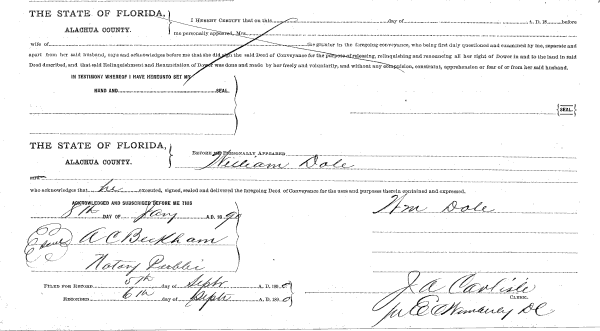 THE STATE OF FLORIDA,
ALACHUA COUNTY.
I HEREBY CERTIFY that on this day of A. D. 18 before
me personally appeared, Mrs.
wife of the grantor in the foregoing conveyance, who being first duly questioned and examined by me, separate and
apart from her said husband, says and acknowledges before me that she did sign the said Deed of Conveyance for the purpose of releasing, relinquishing and renouncing all her right of Dower in and to the land in said
Deed described, and that said Relinquishment and Renunciation of Dower was done and made by her freely and voluntarily, and without any compulsion, constraint, apprehension or fear of or from her said husband.
IN TESTIMONY WHEREOF I HAVE HEREUNTO SET MY
HAND AND SEAL.
SEAL.
THE STATE OF FLORIDA,
ALACHUA COUNTY.
BEFORE ME PERSONALLY APPEARED
William Dole
who acknowledges that he executed, signed, sealed and delivered the foregoing Deed of Conveyance for the uses and purposes therein contained and expressed.
ACKNOWLEDGED AND SUBSCRIBED BEFORE ME THIS
8th DAY OF Jany A. D. 1890
Wm Dole
A C Beckham
Notary Public
FILED FOR RECORD 5th day of Septr A.D. 1890
RECORDED 6th day of Septr A.D. 1890
J. A. Carlisle
CLERK.
DC